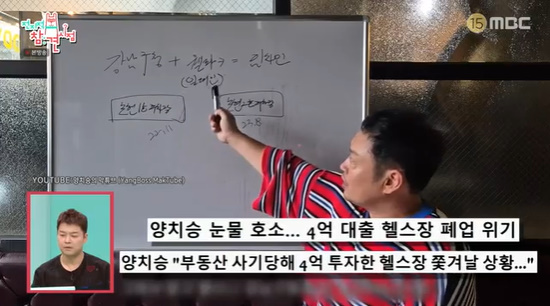 전지적 참견 시점
본방송
15 MBC
강남구청 + = 임차인
22.11
YOUTUBE: 양치승의막튜브 (YangBossMakTube)
양치승 눈물 호소... 4억 대출 헬스장 폐업 위기
양치승 "부동산 사기당해 4억 투자한 헬스장 쫓겨날 상황..."